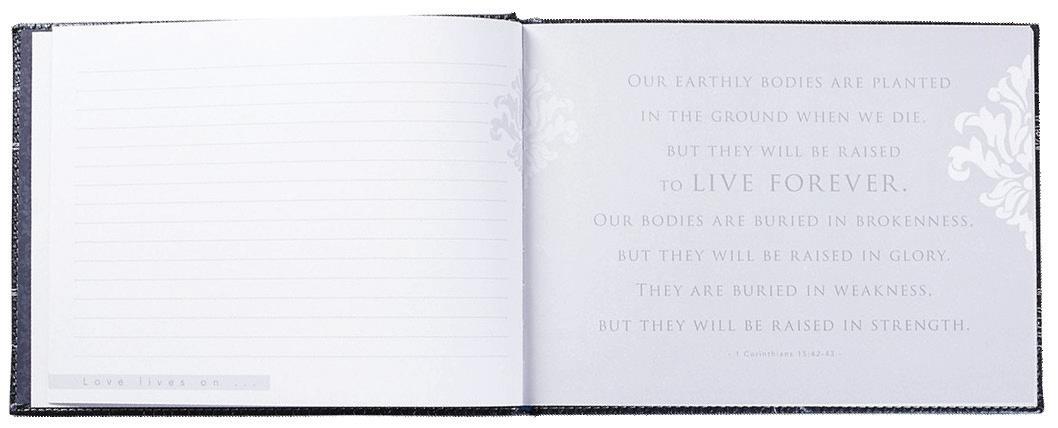 Love lives on ...
OUR EARTHLY BODIES ARE PLANTED
IN THE GROUND WHEN WE DIE,
BUT THEY WILL BE RAISED
TO LIVE FOREVER.
OUR BODIES ARE BURIED IN BROKENNESS,
BUT THEY WILL BE RAISED IN GLORY.
THEY ARE BURIED IN WEAKNESS,
BUT THEY WILL BE RAISED IN STRENGTH.
- 1 Corinthians 15:42-43 -